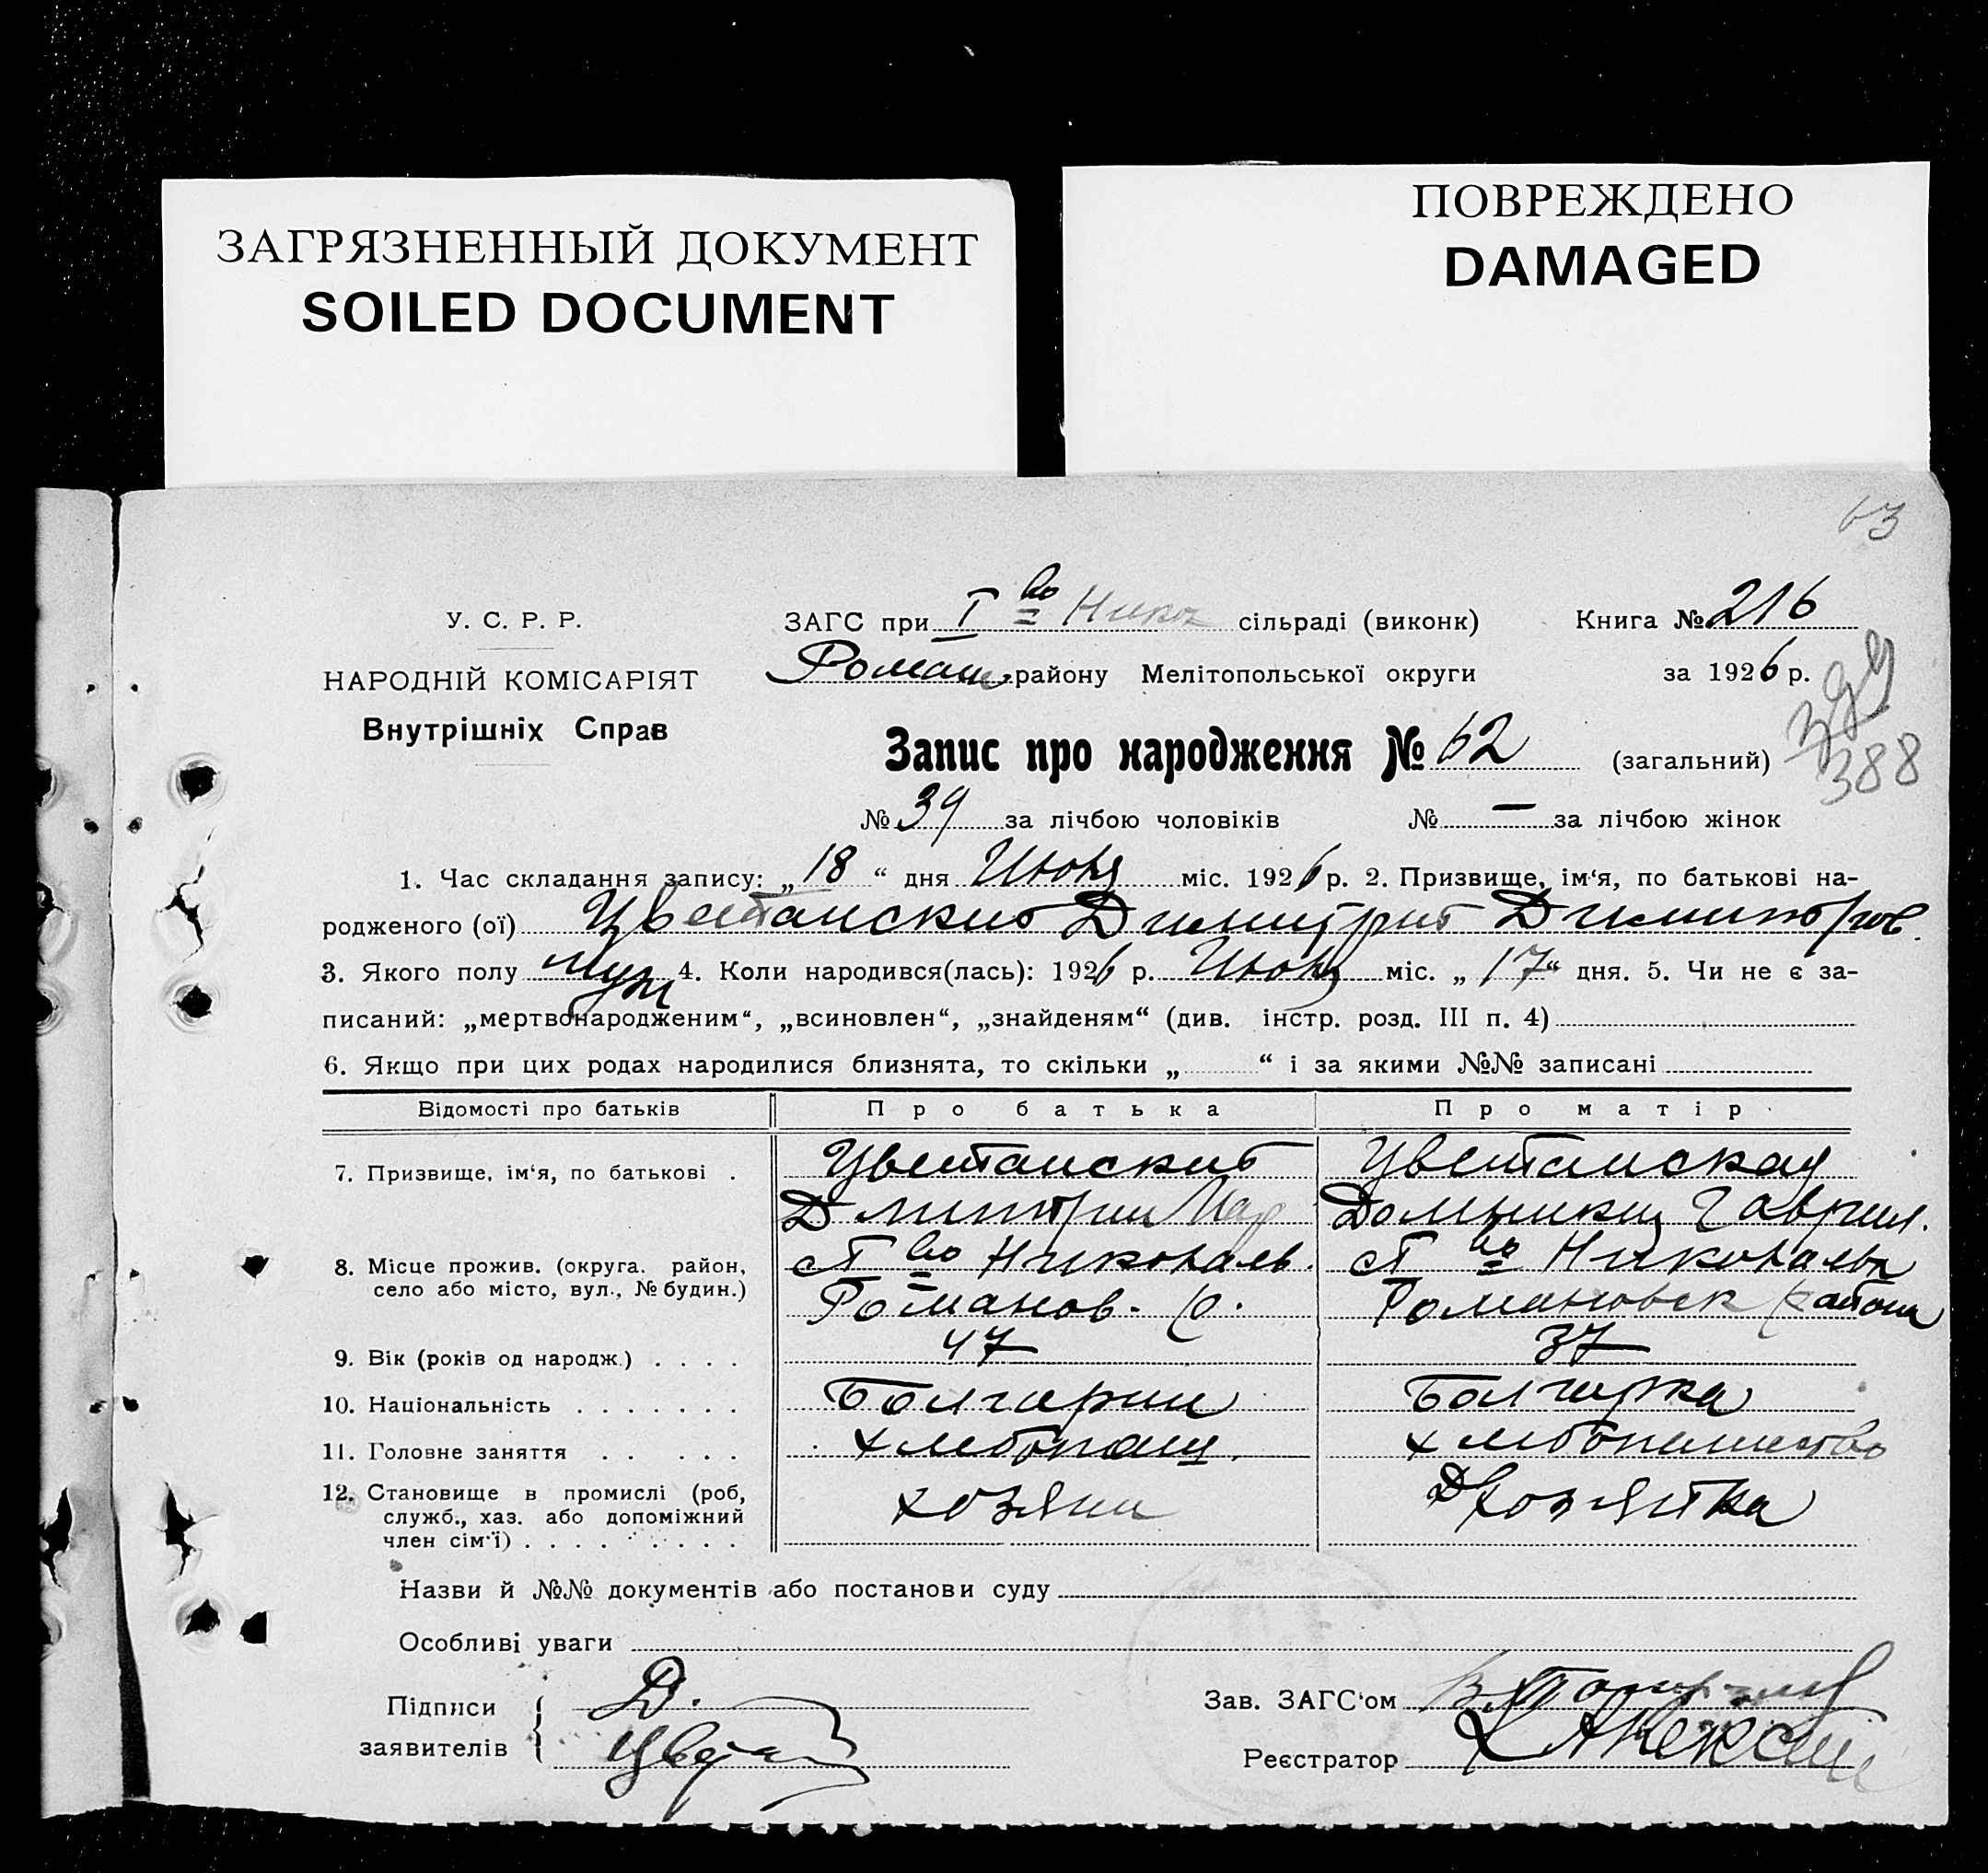 ЗАГРЯЗНЕННЫЙ ДОКУМЕНТ
SOILED DOCUMENT
ПОВРЕЖДЕНО
DAMAGED
63
У. С. Р. Р.
НАРОДНІЙ КОМІСАРІЯТ
Внутрішніх Справ
ЗАГС при І во Никол сільраді (виконк) Книга № 216
Роман району Мелітопольської округи за 1926 р.
388
Запис про народження № 62 (загальний)
№ 39 за лічбою чоловіків № — за лічбою жінок
1. Час складання запису: „18“ дня Июня міс. 1926 р. 2. Призвище, ім‘я, по батькові на-
родженого (ої) Цветанский Димитрий Димитров.
3. Якого полу муж 4. Коли народився(лась): 1926 р. Июня міс. „17“ дня. 5. Чи не є за-
писаний: „мертвонародженим“, „всиновлен“, „знайденям“ (див. інстр. розд. III п. 4)
6. Якщо при цих родах народилися близнята, то скільки „ “ і за якими №№ записані
Відомості про батьків Про батька Про матір
7. Призвище, ім‘я, по батькові . Цветанский Цветанская
Дмитрий Мар Гаврил.
8. Місце прожив. (округа. район, с І во Николаев. с І во Николаев
село або місто, вул., № будин.) Романов. р. Романовск района
9. Вік (років од народж.) . . . . 47 37
10. Національність . . . . . . . Болгарин Болгарка
11. Головне заняття . . . . . хлебопащ. хлебопашество
12. Становище в промислі (роб, хозяин Д хозяйка
служб., хаз. або допоміжний
член сім‘ї) . . . . . . . .
Назви й №№ документів або постанови суду
Особливі уваги
Підписи Д.
заявителів Цвет
Зав. ЗАГС‘ом
Реєстратор